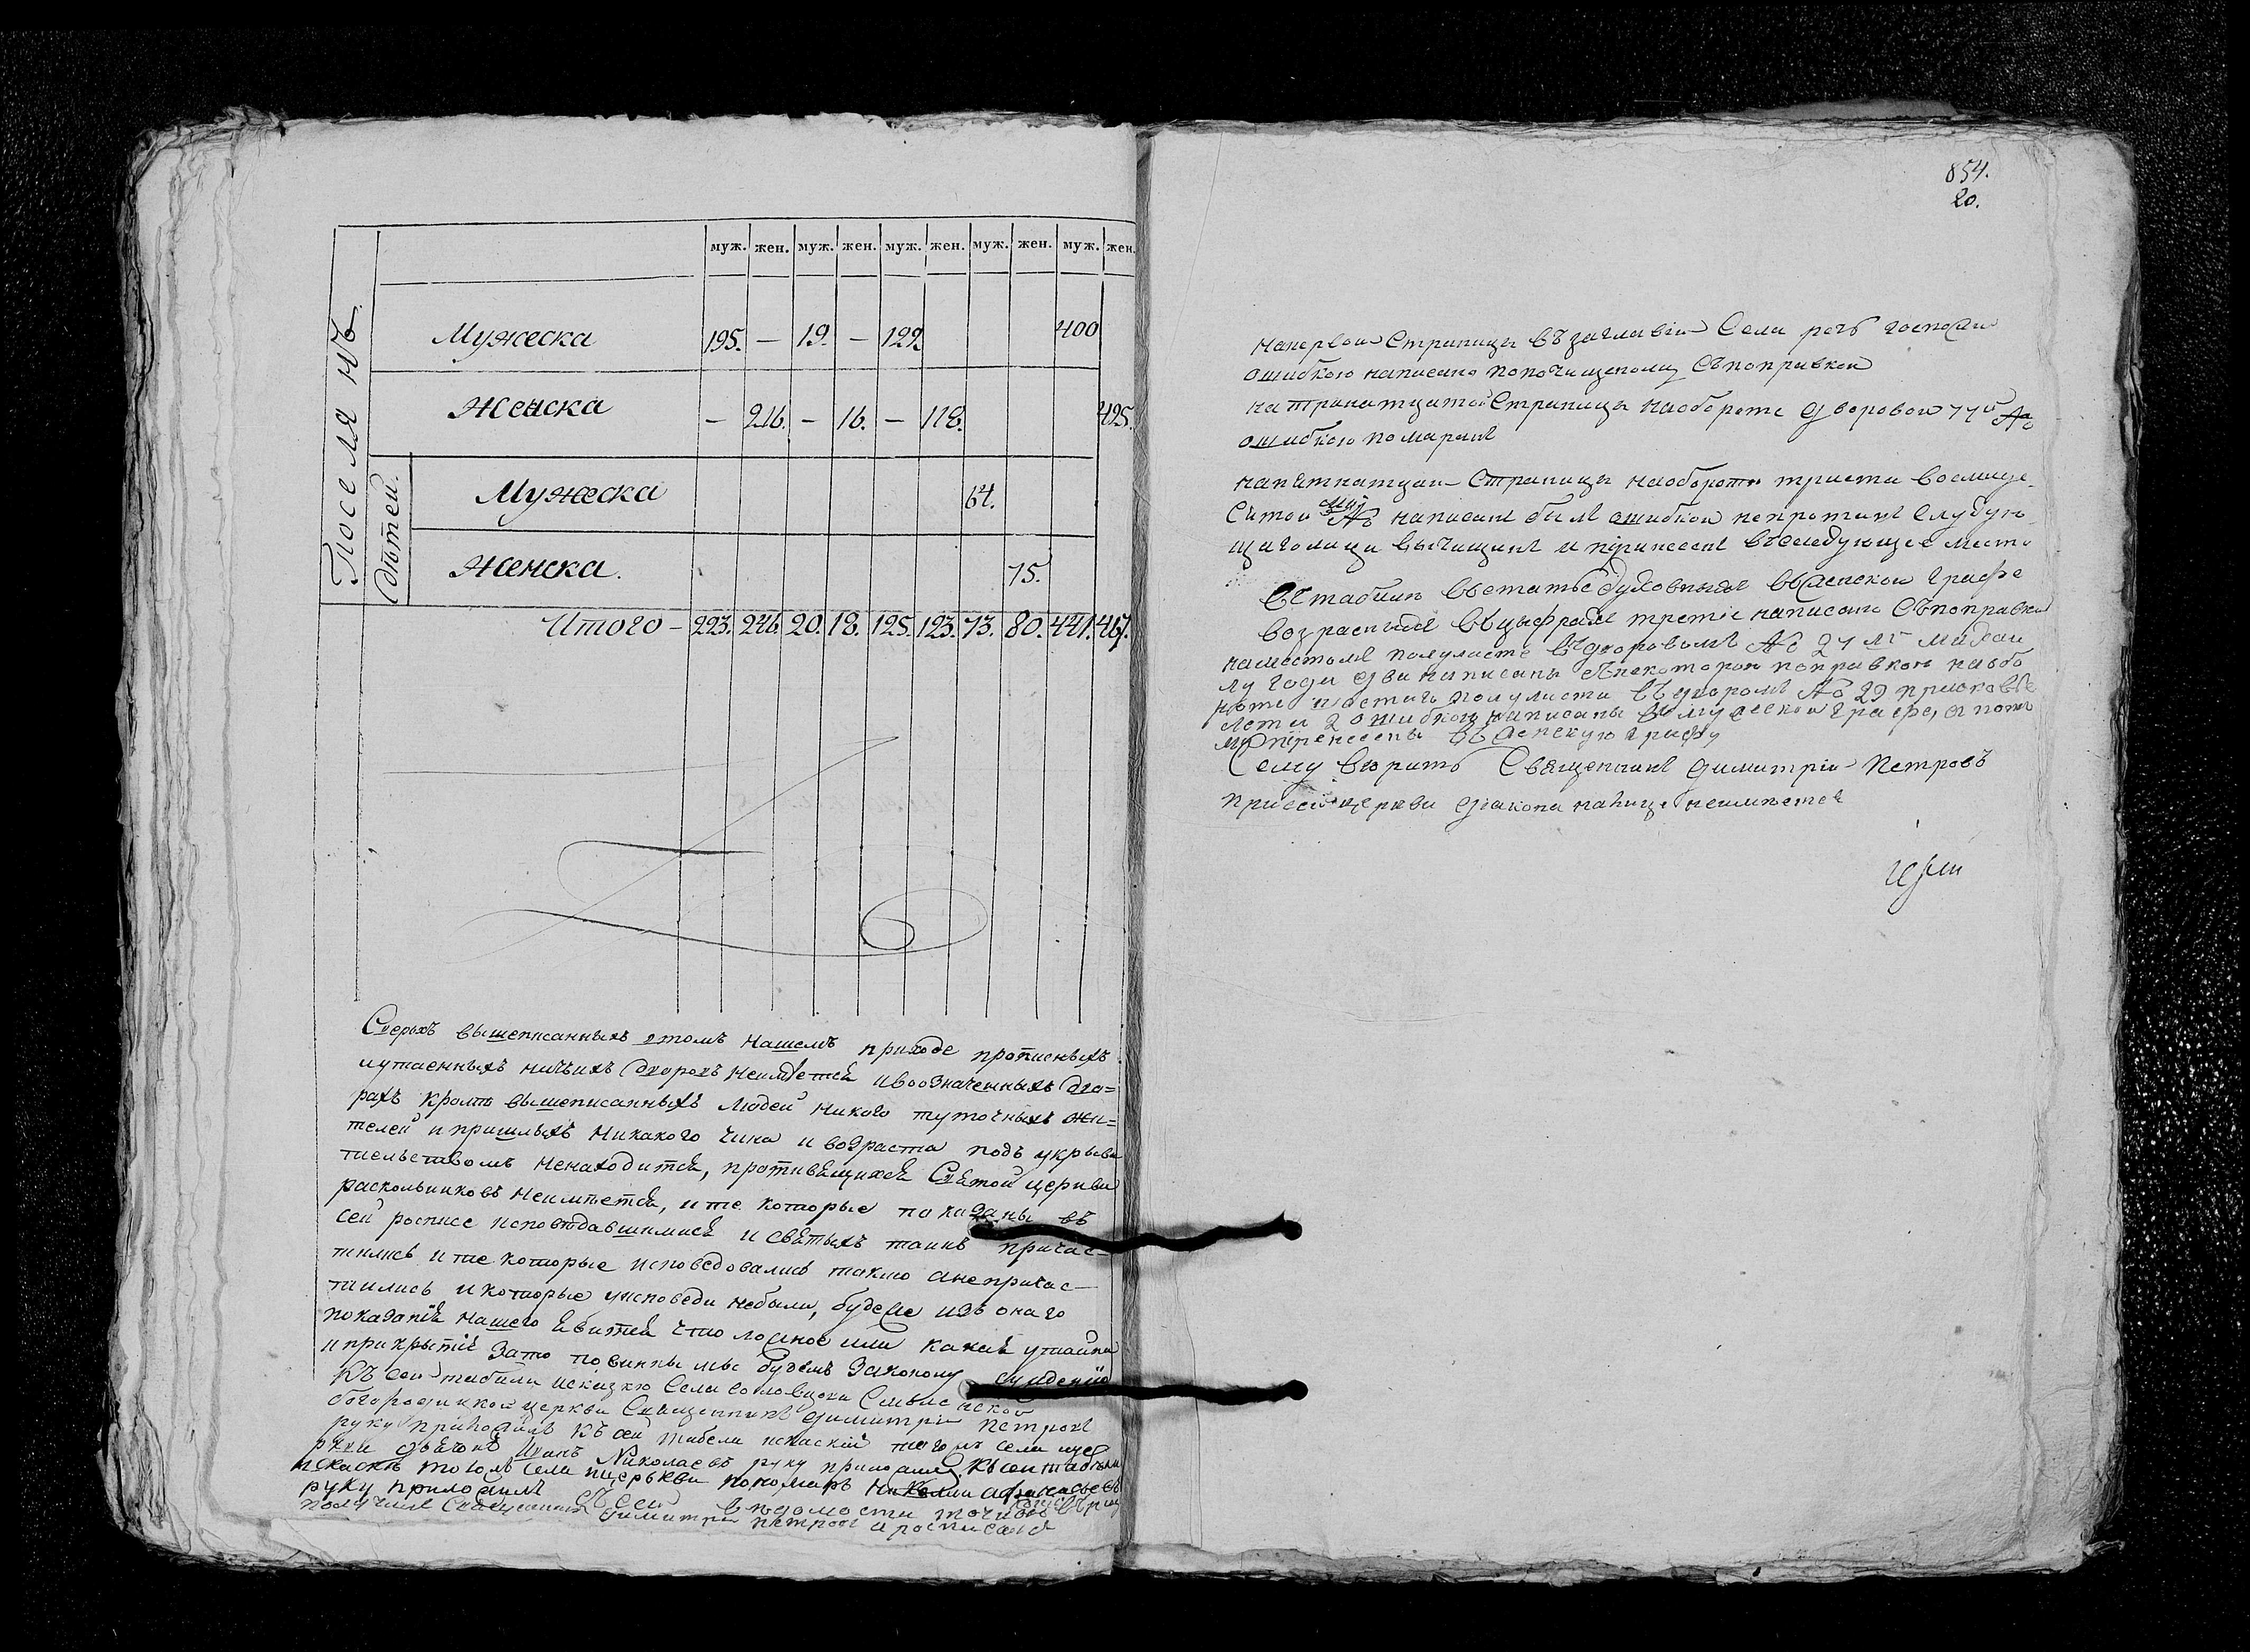 муж. жен. муж. жен. муж. жен. муж. жен. муж. жен.
Поселянъ.
Мужеска 195. — 19. — 122. 400
Женска — 216. — 16. — 118. 425.
Дѣтей.
Мужеска 64.
Женска. 75.
Итого — 223. 246. 20. 18. 125. 123. 73. 80. 441. 467.
Сверхъ вышеписанныхъ втомъ нашемъ приходе прописныхъ
иутаенныхъ ничьихъ дворовъ неимѣется ивоозначенныхъ дво=
рахъ кромѣ вышеписанныхъ людей никого туточныхъ жи=
телей и пришлыхъ никакого чина и возраста подъ укрыва
тельствомъ ненаходится, противящихся святой церкви
раскольниковъ неимѣется, ите которые показаны въ
сей росписе исповѣдавшимися и святыхъ таинъ причас—
тились ите которые исповедовались токмо анепричас—
тились икоторые уисповеди небыли, будеже изъ онаго
показанія нашего явится что ложное или какая утайка
иприкрытіе зато повинны мы будемъ законому сужденію
Къ сей табели исказкѣ села
богородицкой церкви священникъ Димитрій Петровъ
руку приложилъ Къ сей табели исказкѣ тогожъ села цер
ркви дьячокъ Иванъ Николаевъ руку приложилъ Къ сей табѣли
исказкѣ тогожъ села церькви пономарь афанасьевъ
руку приложилъ Съ сей вѣдомости точную копию
получилъ священникъ Димитрій Петровъ и росписался
854.
20.
напервой страницы въ заглавіи села речь господи
ошибкою написано попочищеному съпоправкой
на страницы наобороте дворовой 77й №
ошибкою помаранъ
напятнатцати страницы наобороте триста восмиде=
сятой № написанъ былъ ошибкой непротивъ слѣдую
щаголица вычищинъ и принесенъ вследующее место
Втабели встатье духовныхъ вженской графе
возрастныхъ въцыфрахъ третіе написано съпоправкой
намѣстомъ полулисте въдворовомъ № 27
лу годи два написаны снекоторою поправкою наобо
роте полулиста въдворомъ № 29
лета 2 ошибкою написаны вмужеской графе, а пото
му пренесены въженскую графу
Сему вѣрить священникъ Димитрій Петровъ
Присей церкви дьякона налице неимѣется